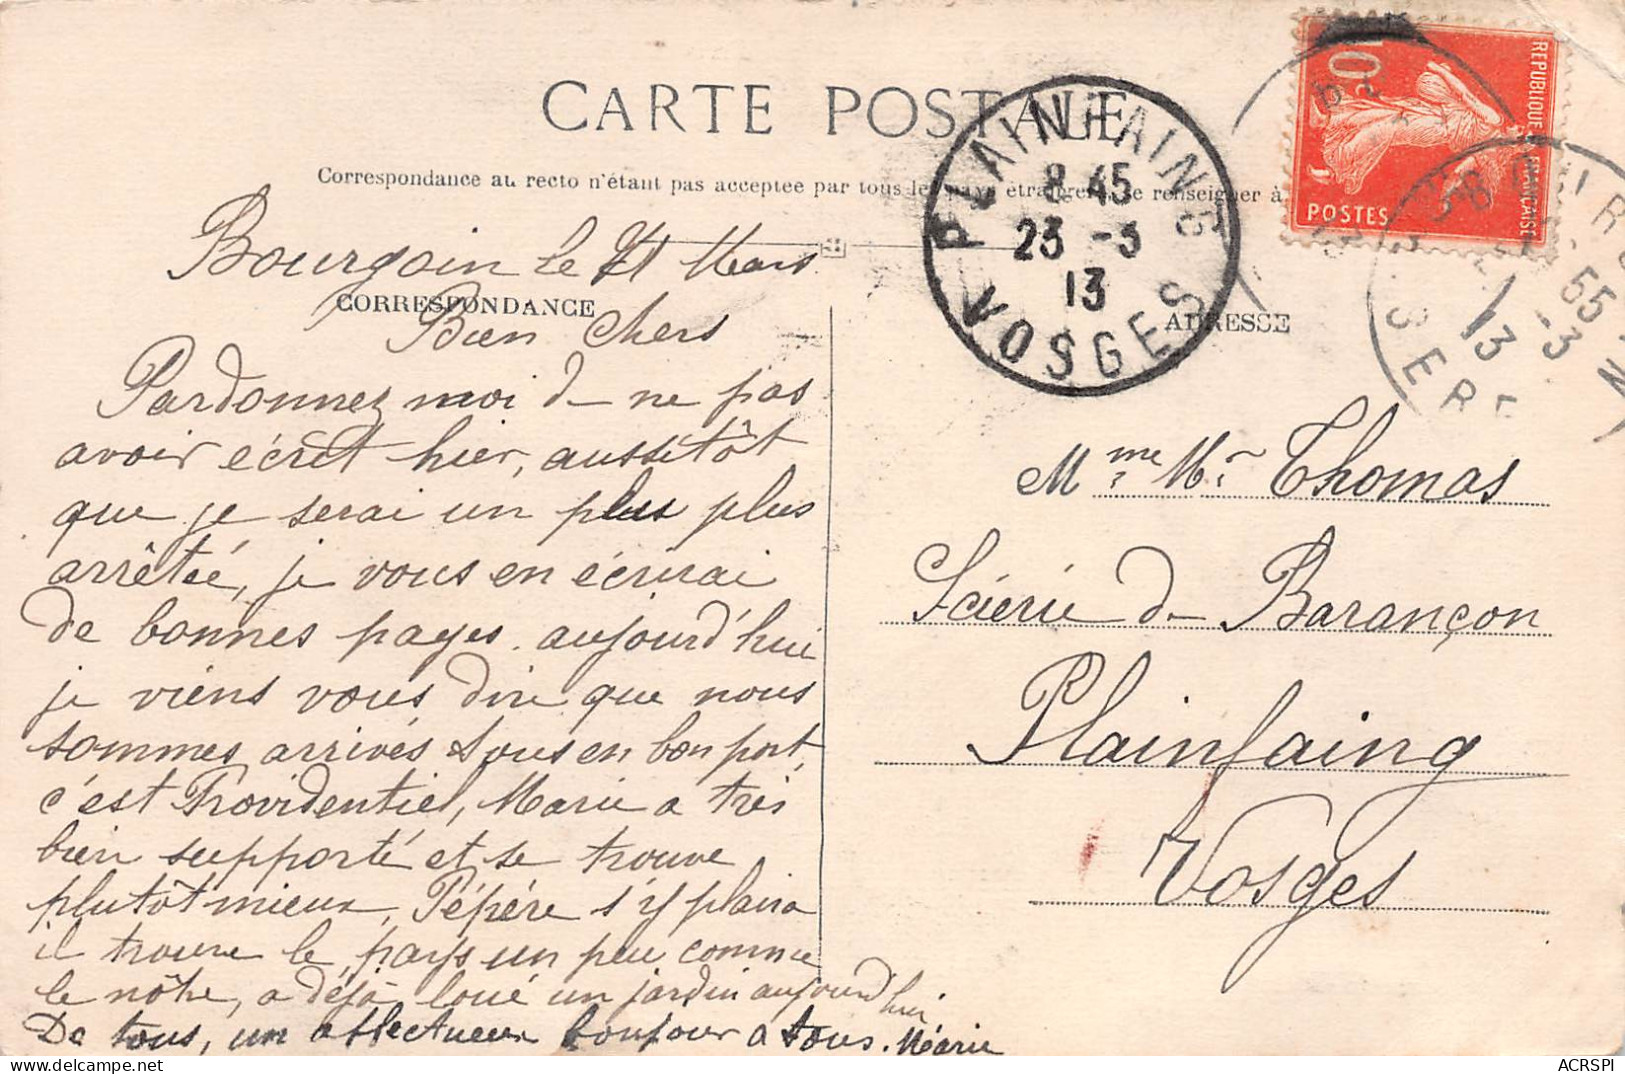 CARTE POSTALE
Correspondance au recto n'étant pas acceptee par tous les pays étrangers, se renseigner à
REPUBLIQUE FRANÇAISE
10
POSTES
PLAINFAING
8 45
23 -3
13
VOSGES
55
-3
13
ISERE
CORRESPONDANCE
ADRESSE
Bourgoin le 21 Mars
Bien Chers
Pardonnez moi de ne pas
avoir écrit hier, aussitôt
que je serai un plus plus
arrêtée, je vous en écrirai
de bonnes pages. aujourd'hui
je viens vous dire que nous
sommes arrivés tous en bon port,
c'est Providentiel, Marie a très
bien supporté et se trouve
plutôt mieux, Pépère s'y plaira
il trouve le pays un peu comme
le nôtre, a déjà loué un jardin aujourd'hui
De tous, un affectueux bonjour a tous. Marie
Mme Mr Thomas
Scierie de Barançon
Plainfaing
Vosges
ACRSPI